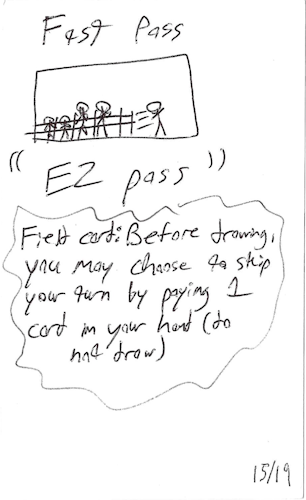 Fast Pass
"EZ pass"
Field card: Before drawing,
you may choose to skip
your turn by paying 1
card in your hand (do
not draw)
15/19